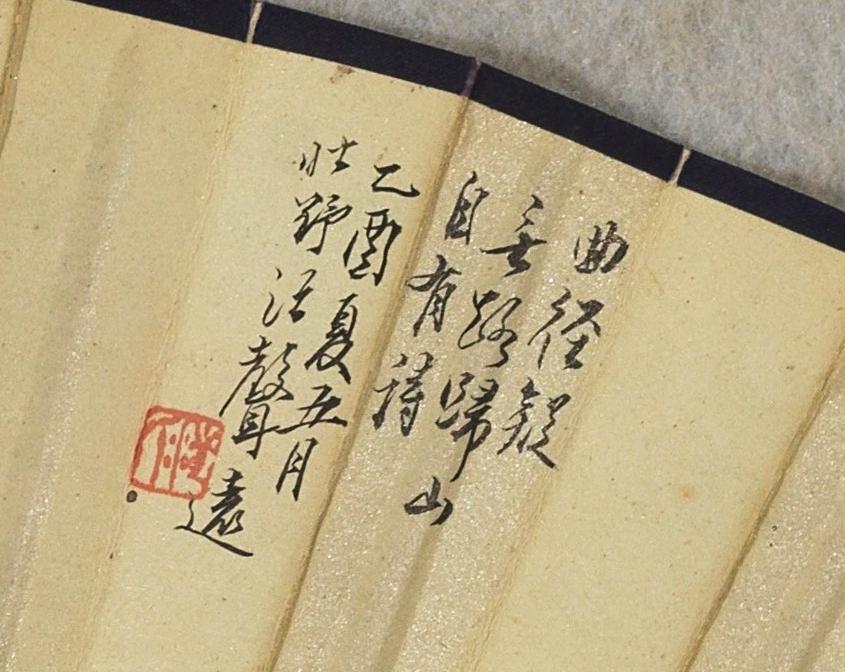 曲径疑
無路歸山
自有詩
乙酉夏五月
壯野江聲遠